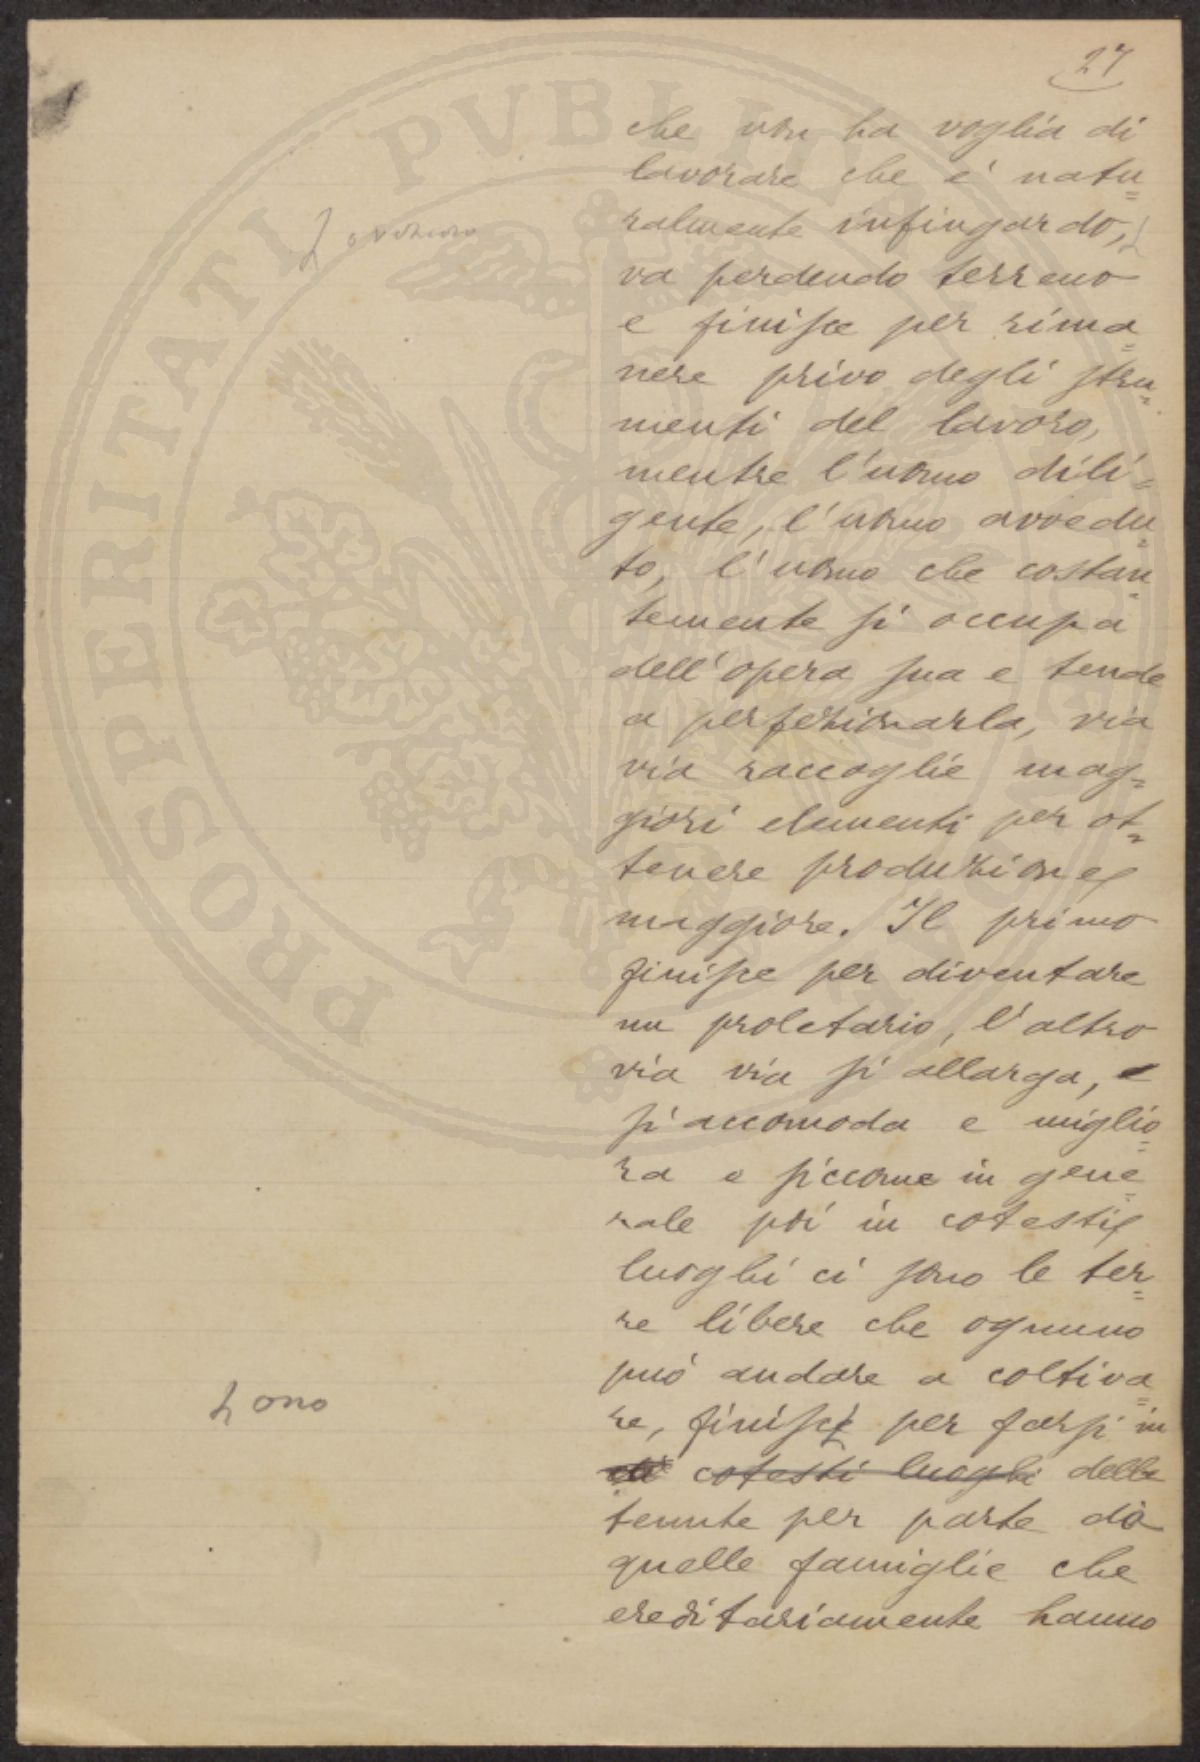 27
che non ha voglia di
lavorare che è natu=
ralmente infingardo,
va perdendo terreno
e finisce per rima=
nere privo degli stru=
menti del lavoro,
mentre l'uomo dili=
gente, l'uomo avvedu=
to, l'uomo che costan=
temente si occupa
dell'opera sua e tende
a perfezionarla, via
via raccoglie mag=
giori elementi per ot=
tenere produzione
maggiore. Il primo
finisce per diventare
un proletario, l'altro
via via si allarga,
si accomoda e miglio=
ra e siccome in gene=
rale poi in cotesti
luoghi ci sono le ter=
re libere che ognuno
può andare a coltiva=
re, finisce per farsi in
ono
cotesti luoghi delle
tenute per parte di
quelle famiglie che
ereditariamente hanno
PROSPERITATI PVBLICAE